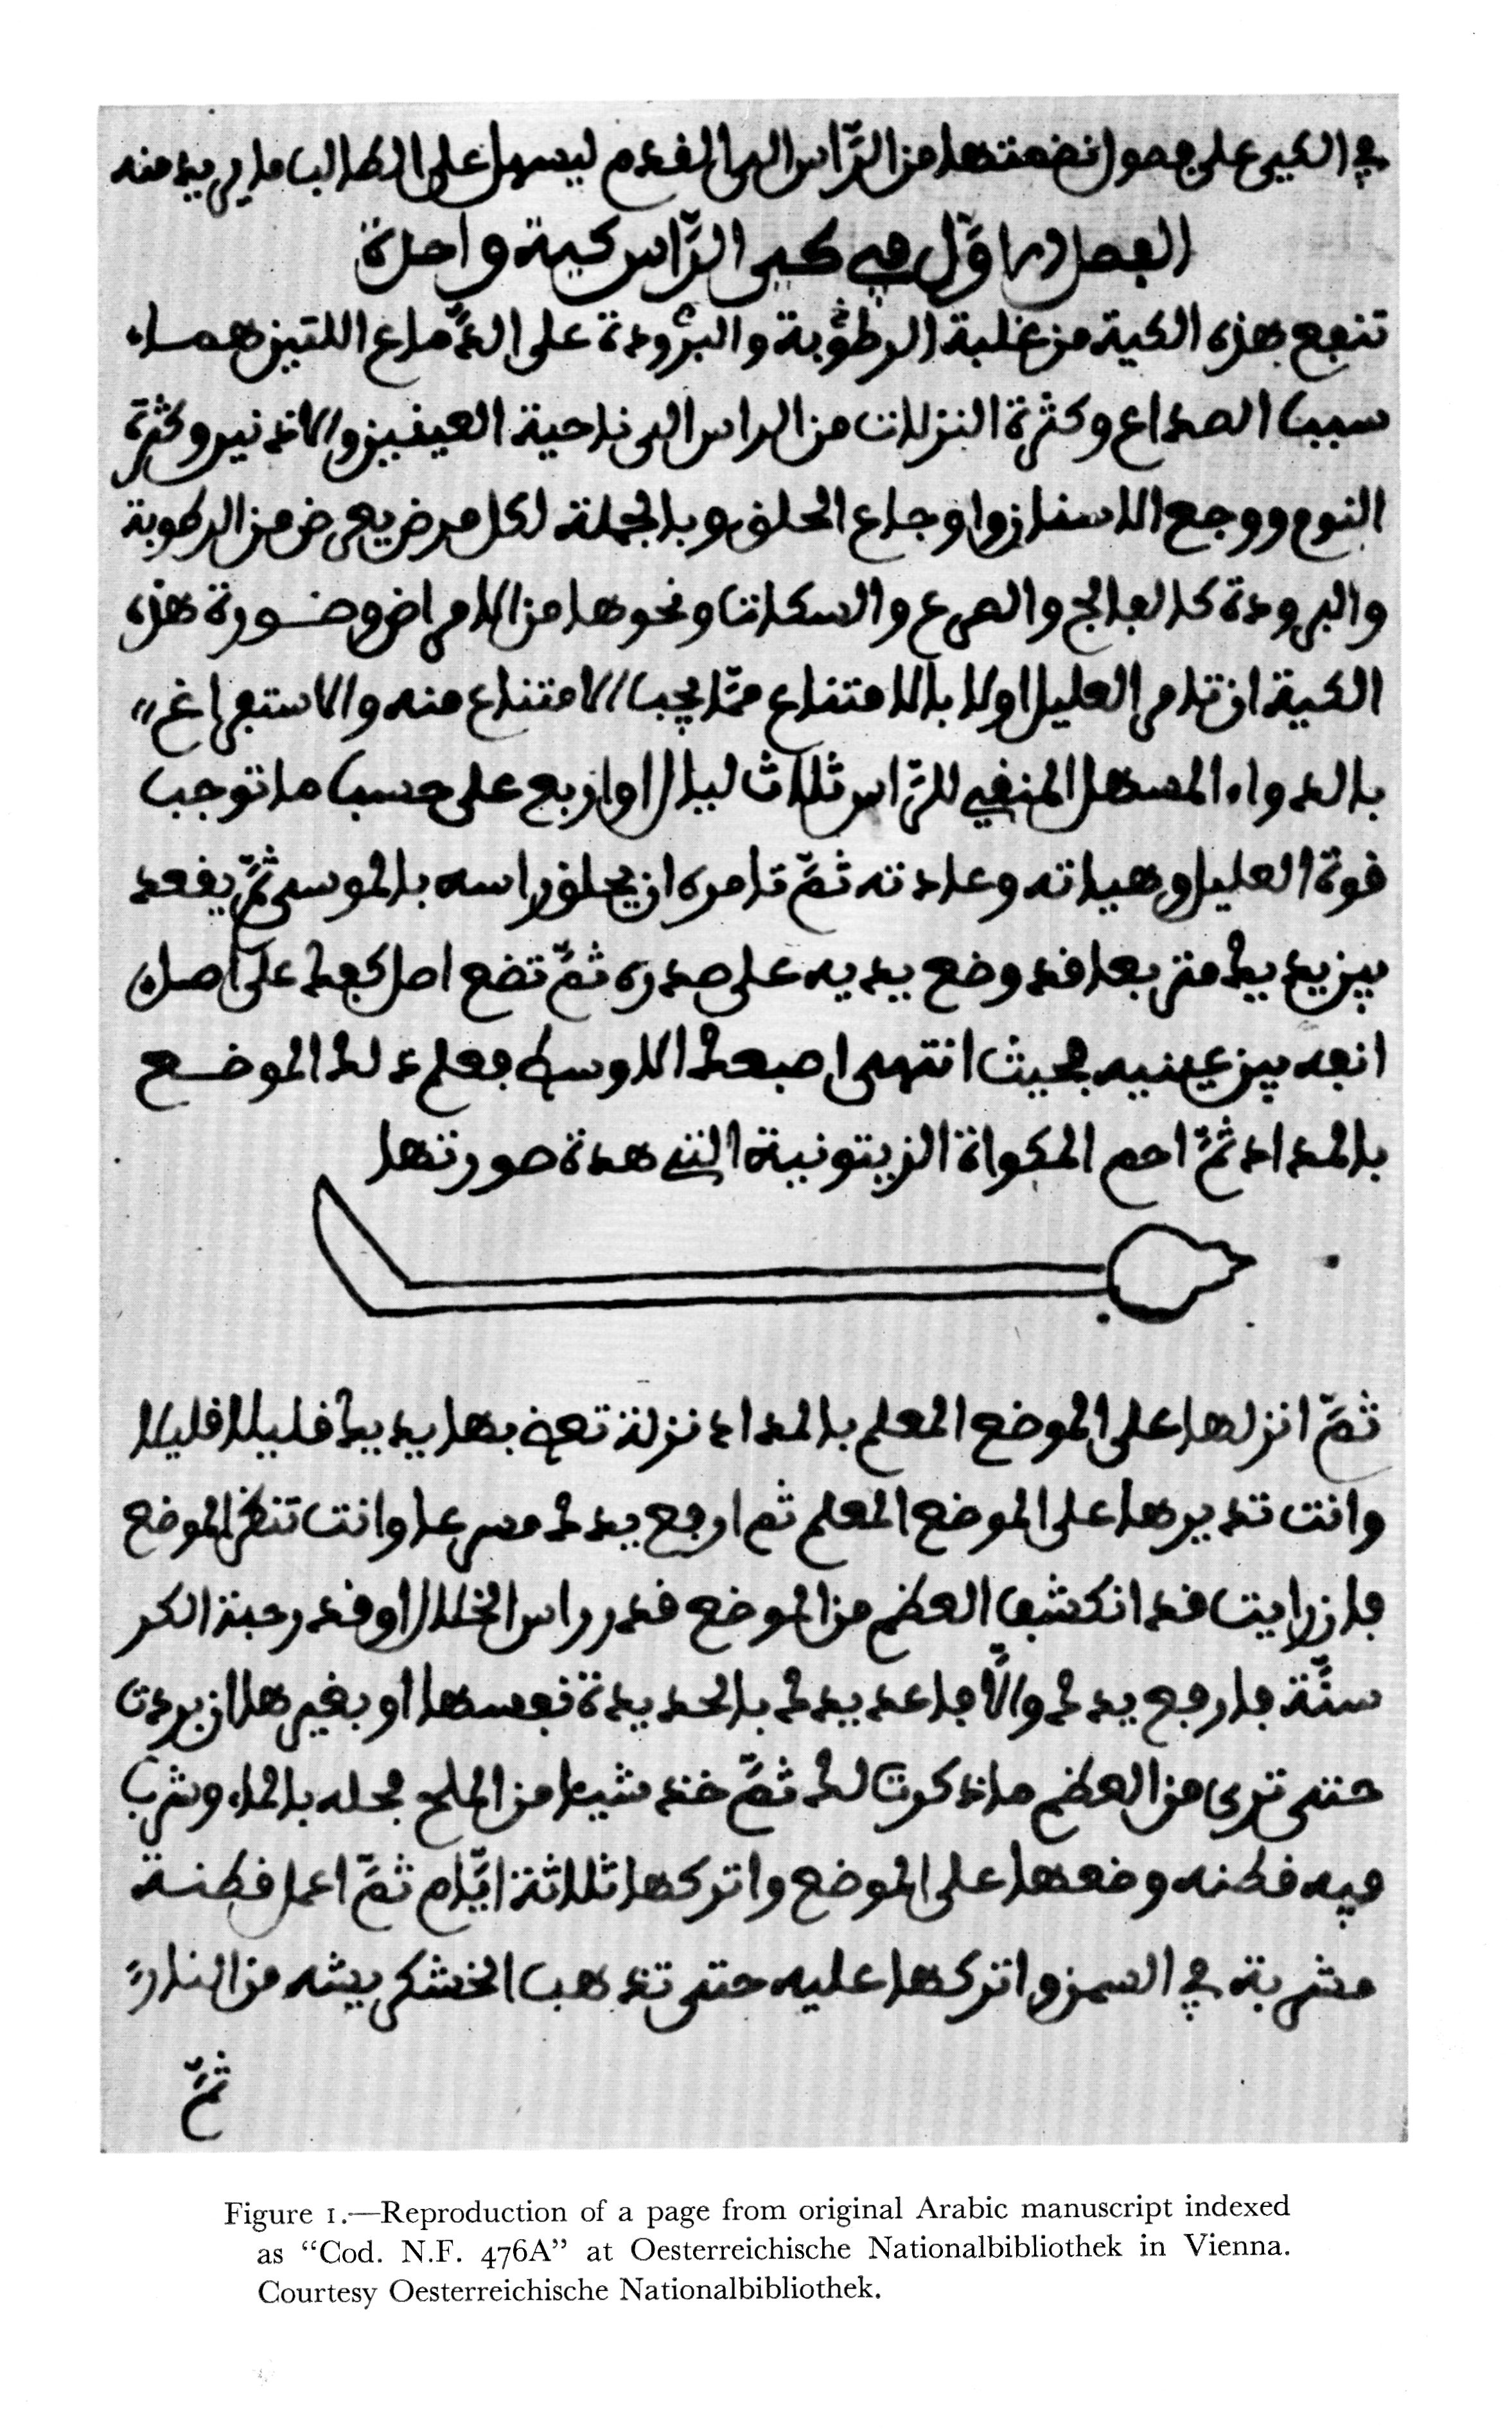 في الكي على فصول نضمتها من الرّاس الى القدم ليسهل على الطالب ما يريد منه
الفصل الاوّل في كي الرّاس كية واحدة
تنفع هذه الكية من غلبة الرطوبة والبرودة على الدّماغ اللتين هما
سبب الصداع وكثرة النزلات من الراس الى ناحية العينين والاذنين وكثرة
النوم ووجع الاسنان واوجاع الحلق وبالجملة لكل مرض يعرض من الرطوبة
والبرودة كالفالج والصرع والسكات ونحوها من الامراض وصورة هذه
الكية ان تامر العليل اولا بالامتناع ممّا يجب الامتناع منه والاستفراغ
بالدواء المسهل المنقي للرّاس ثلاث ليال او اربع على حسب ما توجب
قوة العليل وهياته وعادته ثمّ تامره ان يحلق راسه بالموسى ثمّ يقعد
بين يديك متربعا قد وضع يديه على صدره ثمّ تضع اصل كفك على اصل
انفه بين عينيه فحيث انتهى اصبعك الاوسط فعلم ذلك الموضع
بالمداد ثمّ احم المكواة الزيتونية التي هذة صورتها
ثمّ انزلها على الموضع المعلم بالمداد نزلة تعض بها يديك قليلا قليلا
وانت تديرها على الموضع المعلم ثم ارفع يدك مسرعا وانت تنظر الموضع
فان رايت قد انكشف العظم من الموضع قدر راس الخلال او قدر حبة الكر
سنّة فارفع يدك والّا فاعد يدك بالحديدة نفسها او بغيرها ان بردت
حتى ترى من العظم ما ذكرت لك ثمّ خذ شيا من الملح فحله بالماء وشرب
فيه قطنه وضعها على الموضع واتركها ثلاثة ايّام ثمّ اعمل قطنة
مشربة في السمن واتركها عليه حتى تذهب الخشكريشه من النار
ثمّ
Figure 1.—Reproduction of a page from original Arabic manuscript indexed
as “Cod. N.F. 476A” at Oesterreichische Nationalbibliothek in Vienna.
Courtesy Oesterreichische Nationalbibliothek.